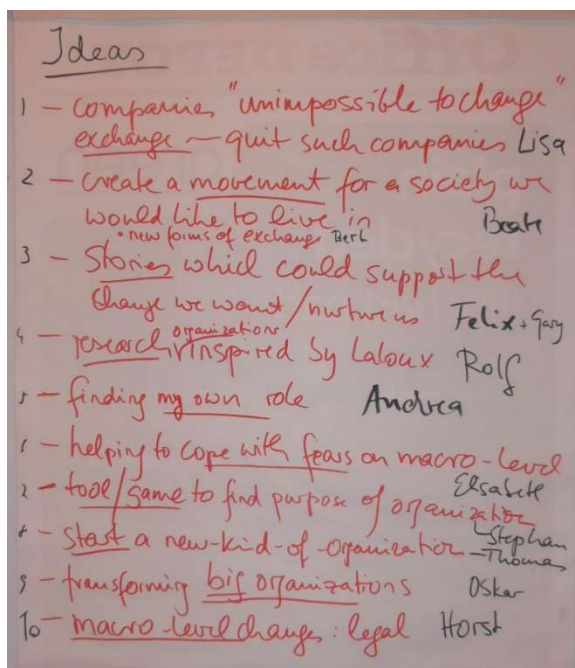 Ideas
1 – companies "unimpossible to change"
exchange – quit such companies Lisa
2 – create a movement for a society we
would like to live in Beate
• new forms of exchange Bert
3 – Stories which could support the
change we want / nurture us Felix + Gary
organizations
4 – research inspired by Laloux Rolf
5 – finding my own role Andrea
6 – helping to cope with fears on macro-level
Elsabeth
7 – tool/game to find purpose of organization
8 – start a new-kind-of-organization – Stephan
– Thomas
9 – transforming big organizations Oskar
10 – macro-level changes: legal Horst